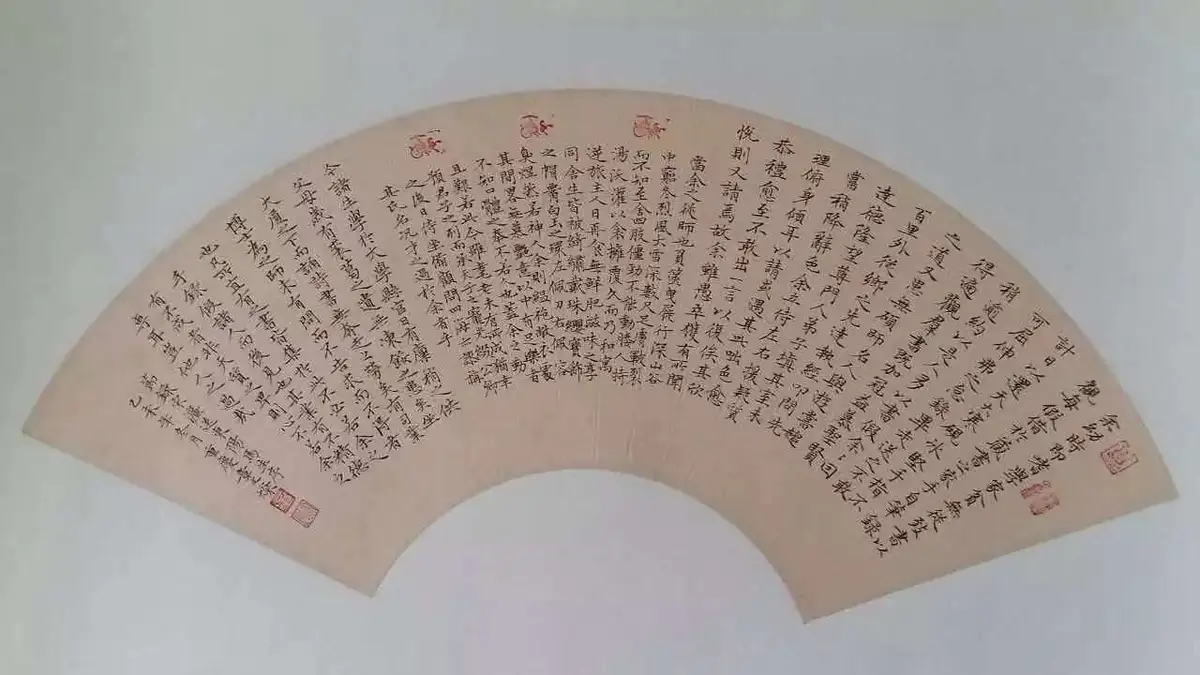 余幼時即嗜學家貧無從致書以
觀每假借於藏書家手自筆錄
計日以還天大寒硯冰堅手指不
可屈伸弗之怠錄畢走送之不敢
稍逾約以是人多以書假余余因
得遍觀羣書既加冠益慕聖賢
之道又患無碩師名人與遊嘗
百里外從鄉之先達執經叩問先
達德隆望尊門人弟子填其室未
嘗稍降辭色余立侍左右援疑質
理俯身傾耳以請或遇其叱咄色愈
恭禮愈至不敢出一言以復俟其欣
悅則又請焉故余雖愚卒獲有所聞
當余之從師也負篋曳屣行深山谷
中窮冬烈風大雪深數尺足膚皸裂
而不知至舍四肢僵勁不能動媵人持
湯沃灌以衾擁覆久而乃和寓
逆旅主人日再食無鮮肥滋味之享
同舍生皆被綺繡戴珠纓寶飾
之帽腰白玉之環左佩刀右佩容
臭煜然若神人余則縕袍敝衣處
其間畧無慕艷意以中有足樂者
不知口體之奉不若人也蓋余之勤
且艱若此今雖耄老未有所成猶幸
預君子之列而承天子之寵光綴公卿
之後日侍坐備顧問四海亦謬稱
其氏名況才之過於余者乎
今諸生學於太學縣官日有廩稍之供
父母歲有裘葛之遺無凍餒之患矣坐
大廈之下而誦詩書無奔走之勞矣有司業
博士為之師未有問而不告求而不得者
也凡所宜有之書皆集於此不必若余之
手錄假諸人而後見也其業有不精德
有不成者非天質之卑則心不若余之
專耳豈他人之過哉
節錄宋濂送東陽馬生序